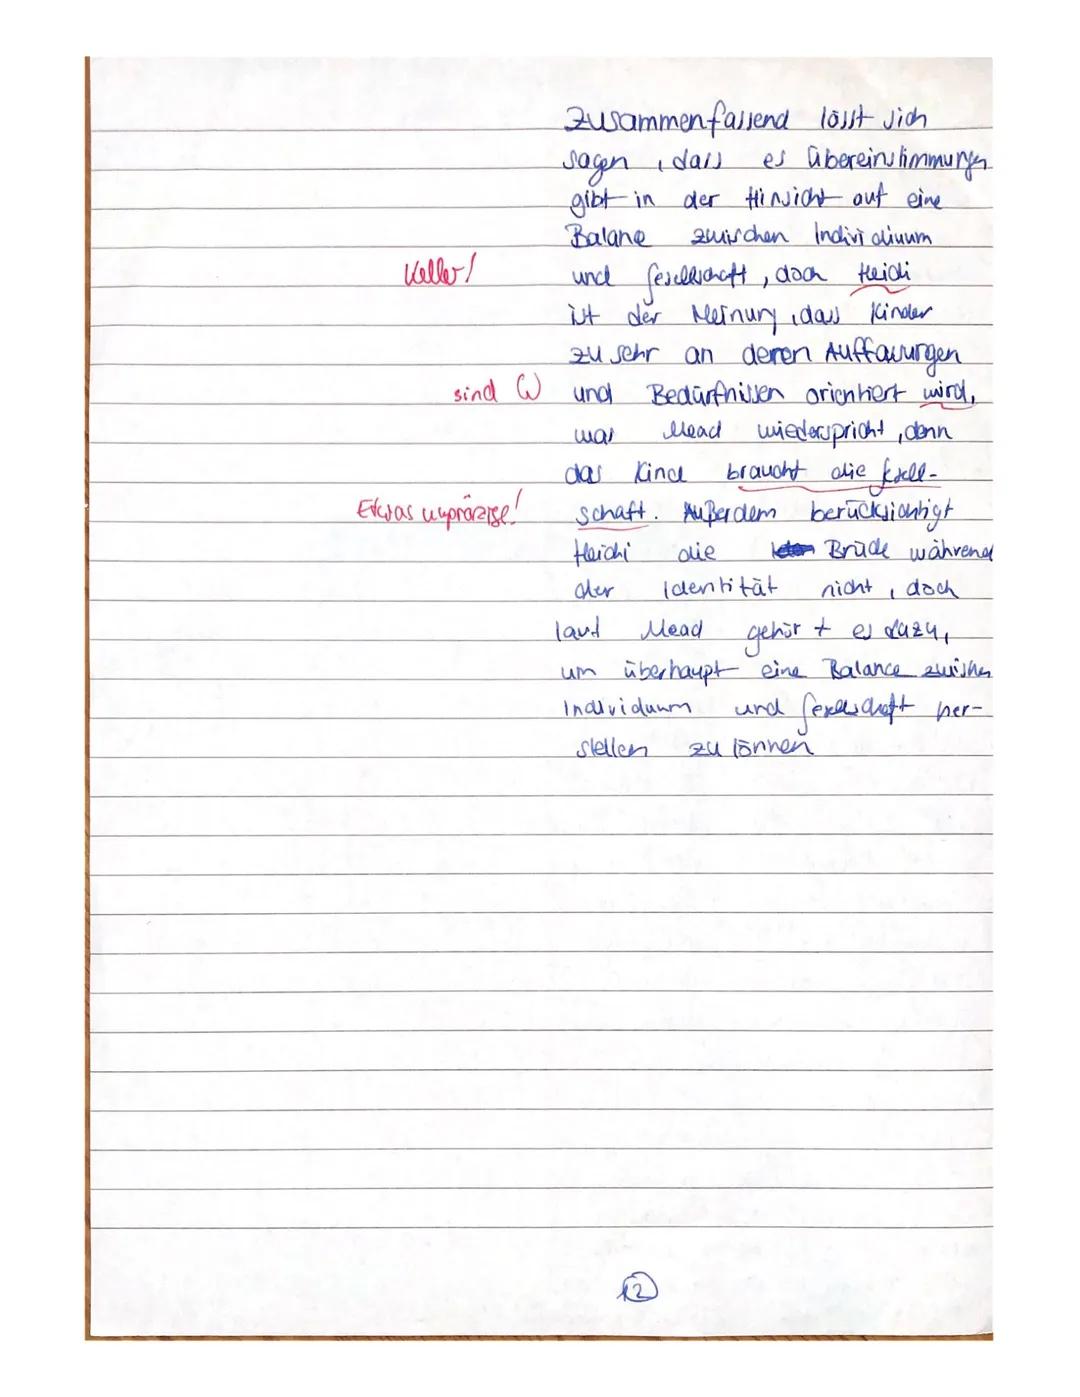 Zusammenfassend lässt sich
sagen, dass es Übereinstimmungen
gibt in der Hinsicht auf eine
Balane zwischen Individuum
Keller! und Gesellschaft, doch Heidi
ist der Meinung, dass Kinder
zu sehr an deren Auffassungen
sind (W) und Bedürfnissen orientiert wird,
was Mead wiederspricht, denn
das Kind braucht die Gesell-
Etwas unpräzise! schaft. Außerdem berücksichtigt
Heidi die Brücke während
der Identität nicht, doch
laut Mead gehört es dazu,
um überhaupt eine Balance zwischen
Individuum und Gesellschaft her-
stellen zu können
12